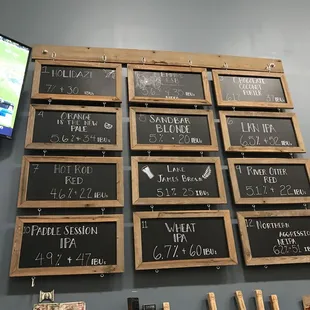 1 HOLIBAZI
7% + 30 IBU's
3 CHOCOLATE
COCONUT PORTER
4 ORANGE
IS THE NEW
PALE
5.6% + 34 IBU's
5 SANDBAR
BLONDE
5% + 20 IBU's
6
LKN IPA
6.5% + 52 IBU's
7 HOT ROD
RED
4.6% + 22 IBU's
8 LAKE
JAMES BROWN
5.1% + 25 IBU's
9 RIVER OTTER
RED
5.1% + 22 IBU's
10
PADDLE SESSION
IPA
4.9% + 47 IBU's
11 WHEAT
IPA
6.7% + 60 IBU's
12 NORTHERN
AGGRESSION
NEIPA
6.2% + 51 IBU's